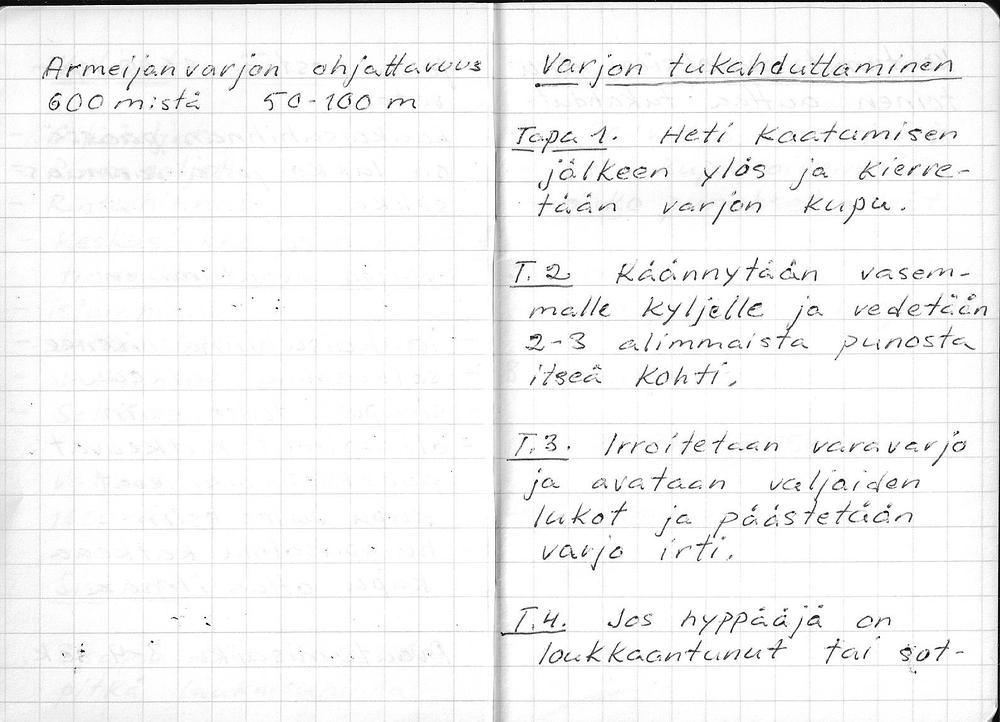 Armeijan varjon ohjattavuus
600 mistä 50-100 m
Varjon tukahduttaminen
Tapa 1. Heti kaatumisen
jälkeen ylös ja kierre-
tään varjon kupu.
T.2 Käännytään vasem-
malle kyljelle ja vedetään
2-3 alimmaista punosta
itseä kohti.
T.3. Irroitetaan varavarjo
ja avataan valjaiden
lukot ja päästetään
varjo irti.
T.4. Jos hyppääjä on
loukkaantunut tai sot-